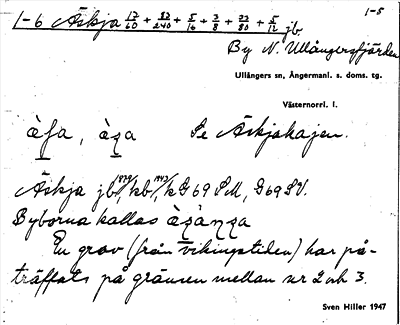 1-5
1-6 Äskja 13/60 + 83/240 + 5/16 + 3/8 + 23/80 + 5/12 jb
By N. Ullångersfjärden
Ullångers sn, Ångermanl. s. doms. tg.
Västernorrl. l.
Se Äskjakajen.
Äskja jb, kb, kG 69 SM, G 69 SV.
Byborna kallas
En grav (från vikingstiden) har på-
träffats på gränsen mellan nr 2 och 3.
Sven Hiller 1947